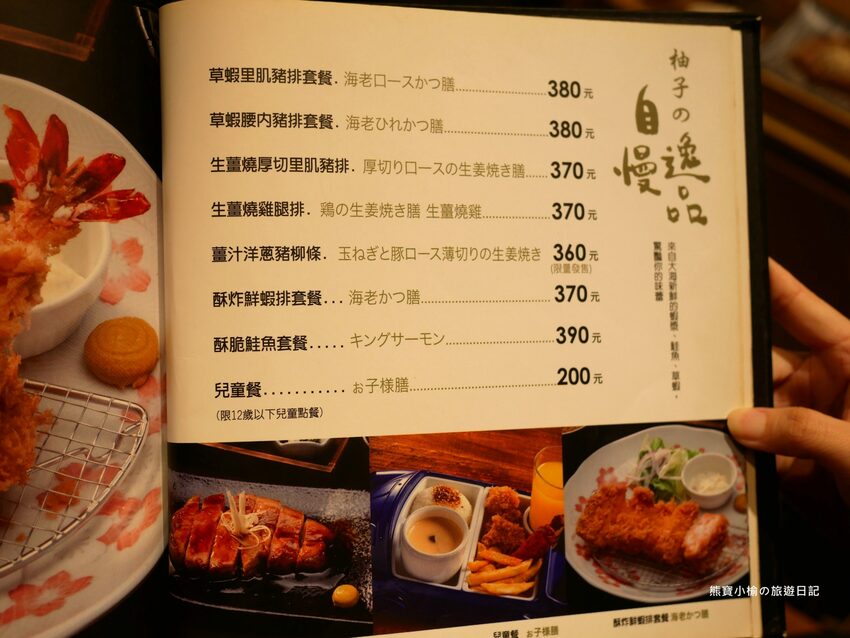 柚子の
自慢
逸品
來自大海新鮮的蝦漿、鮭魚、草蝦，
驚豔你的味蕾
草蝦里肌豬排套餐. 海老ロースかつ膳........................380元
草蝦腰內豬排套餐. 海老ひれかつ膳...........................380元
生薑燒厚切里肌豬排. 厚切りロースの生姜焼き膳......370元
生薑燒雞腿排. 鶏の生姜焼き膳 生薑燒雞..................370元
薑汁洋蔥豬柳條. 玉ねぎと豚ロース薄切りの生姜焼き 360元
(限量發售)
酥炸鮮蝦排套餐... 海老かつ膳.................................370元
酥脆鮭魚套餐..... キングサーモン............................390元
兒童餐........... お子様膳.....................................200元
(限12歲以下兒童點餐)
兒童餐 お子様膳
酥炸鮮蝦排套餐 海老かつ膳
熊寶小榆の旅遊日記